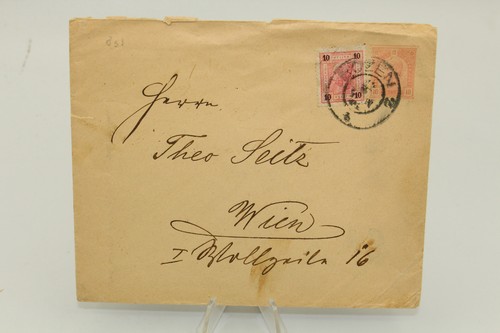 10 10
10 10
BOZEN
2
Herrn
Theo Seitz
Wien
I Wollzeile 16